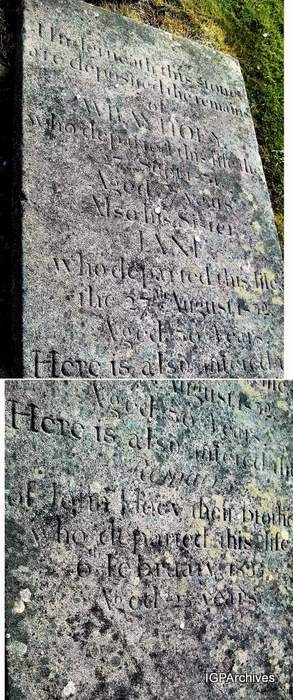 Underneath this stone
are deposited the remains
of
who departed this life the
Aged years
Also his Sister
JANE
who departed this life
the 27th August 1872
Aged 50 Years.
Here is also interred
August 1872
Aged 50 Years.
Here is also interred the
remains
of John their brother
who departed this life
6 February
Aged years
IGPArchives